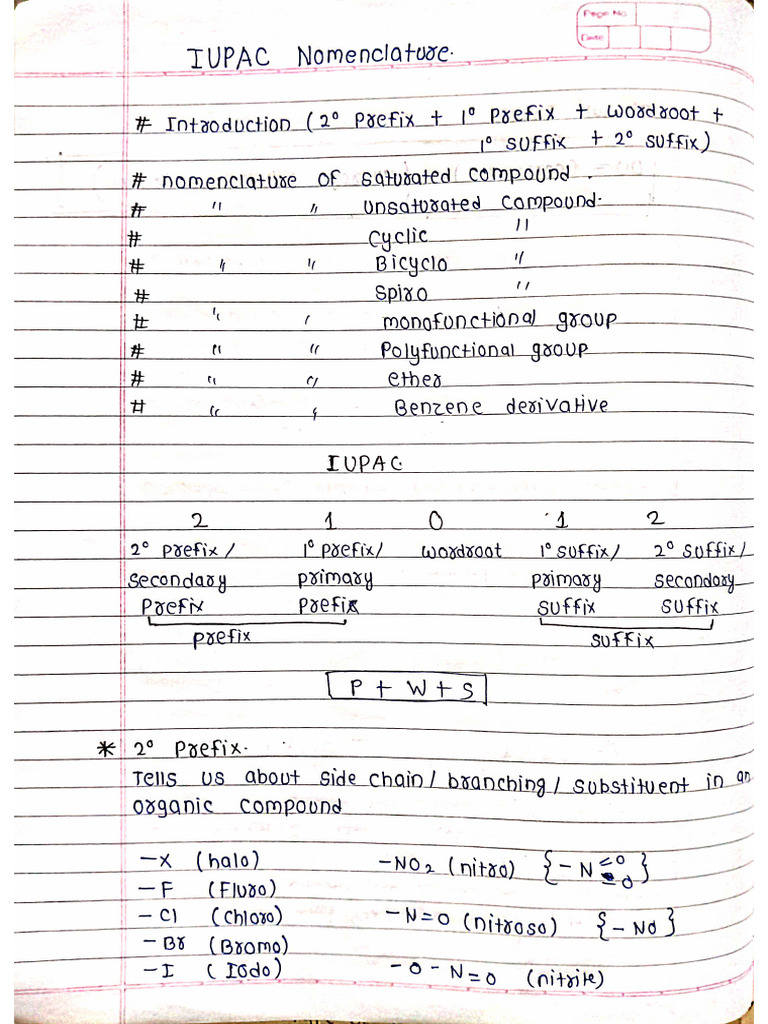 Page No.
Date
IUPAC Nomenclature.
# Introduction (2° Prefix + 1° Prefix + wordroot +
1° suffix + 2° suffix)
# nomenclature of saturated compound.
# " " unsaturated compound.
# cyclic "
# " " Bicyclo "
# Spiro "
# " ' monofunctional group
# " " Polyfunctional group
# " " ether
# " " Benzene derivative
IUPAC.
2 1 0 1 2
2° Prefix / 1° Prefix/ wordroot 1° suffix/ 2° suffix/
secondary primary primary secondary
Prefix Prefix suffix suffix
prefix suffix
P + W + S
* 2° Prefix.
Tells us about side chain / branching / substituent in an
organic compound
-X (halo) -NO2 (nitro) {-N=O =O}
-F (Fluro)
-Cl (chloro) -N=O (nitroso) {-NO}
-Br (Bromo)
-I (Iodo) -O-N=O (nitrite)